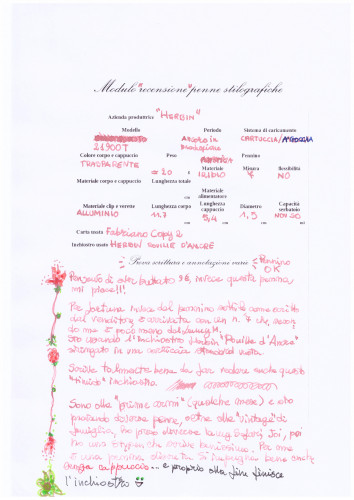 Modulo "recensione" penne stilografiche
Azienda produttrice "HERBIN"
Modello
Periodo
Sistema di caricamento
21900T
Ancora in produzione
CARTUCCIA/
Colore corpo e cappuccio
Peso
Materiale
Pennino
Misura
flessibilità
TRASPARENTE
≃ 20
g
IRIDIO
F
NO
Materiale corpo e cappuccio
Lunghezza totale
cm
Materiale alimentatore
Materiale clip e verette
Lunghezza corpo
Lunghezza cappuccio
Diametro
Capacità serbatoio
ALLUMINIO
11.7
cm
5,4
cm
1,5
cm
NON SO
ml
Carta usata Fabbriano Copy 2
Inchiostro usato HERBIN ROUILLE D'ANCRE
Prova scrittura e annotazioni varie
Pennino OK
Pensavo di aver buttato 9€, invece questa penna
mi piace!!!
Per fortuna
il venditore, è arrivata con un
è poco meno del Lamy M.
Sto usando l'inchiostro Herbin "Rouille d'Ancre"
siringato in una cartuccia Standard vuota.
Scrive talmente bene da far vedere anche questo
"timido" inchiostro
Sono alle "prime armi" (qualche mese) e sto
provando diverse penne, oltre alle "vintage" di
famiglia, ho preso diverse Lamy Safari, Joi, poi
ho una che scrive benissimo. Per me
è una penna discreta. Si impugna bene anche
senza cappuccio... e proprio alla fine finisce
l'inchiostro